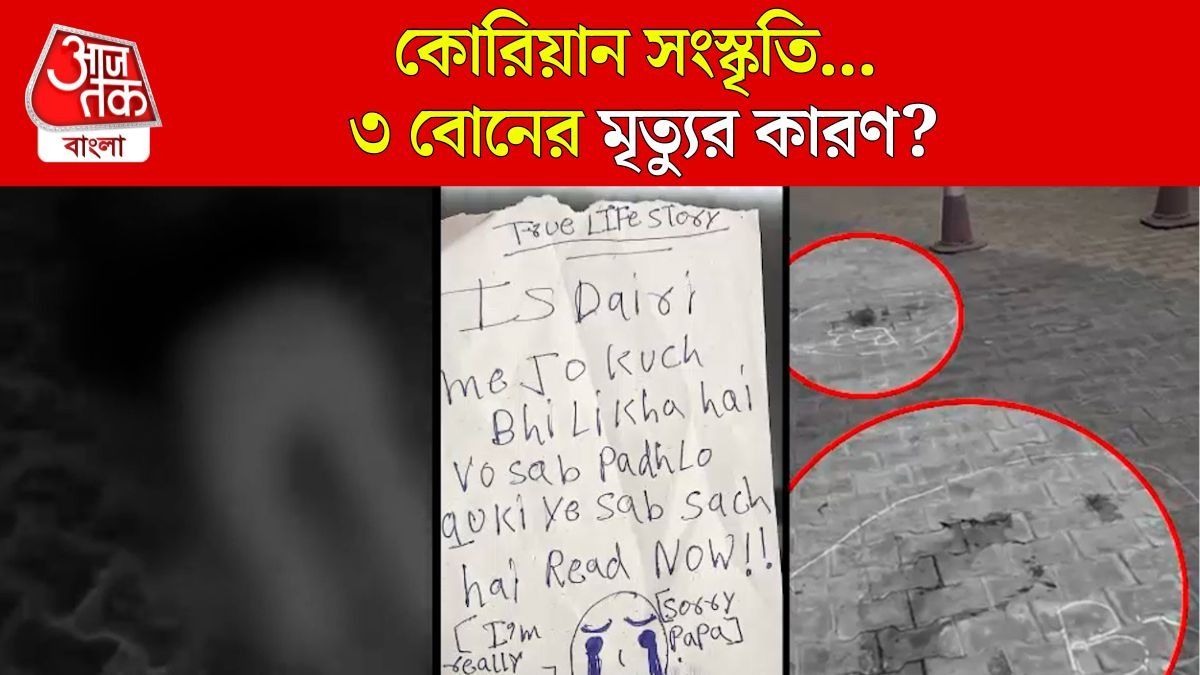 আজ
তক
বাংলা
কোরিয়ান সংস্কৃতি...
৩ বোনের মৃত্যুর কারণ?
True LIFe STory
IS Dairi
me Jo kuch
Bhi Likha hai
vo sab padhLo
quki ye sab sach
hai Read NOW!!
[I'm
really
[sorry
papa]
B